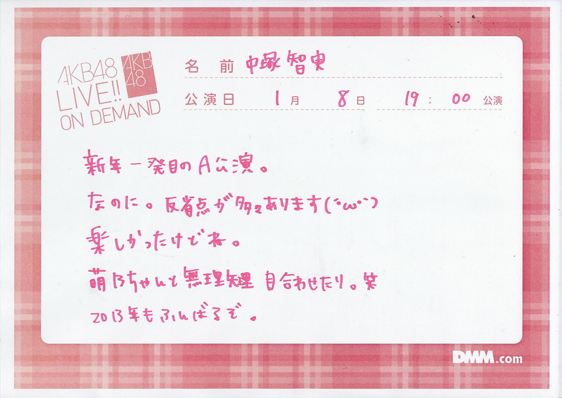 AKB48
LIVE!!
ON DEMAND
AKB
48
名前 中塚智実
公演日 1月 8日 19:00 公演
新年一発目のA公演。
なのに。反省点が多々あります(´･ω･`)
楽しかったけどね。
萌乃ちゃんと無理矢理 目合わせたり。笑
2013年もふんばるで。
DMM.com